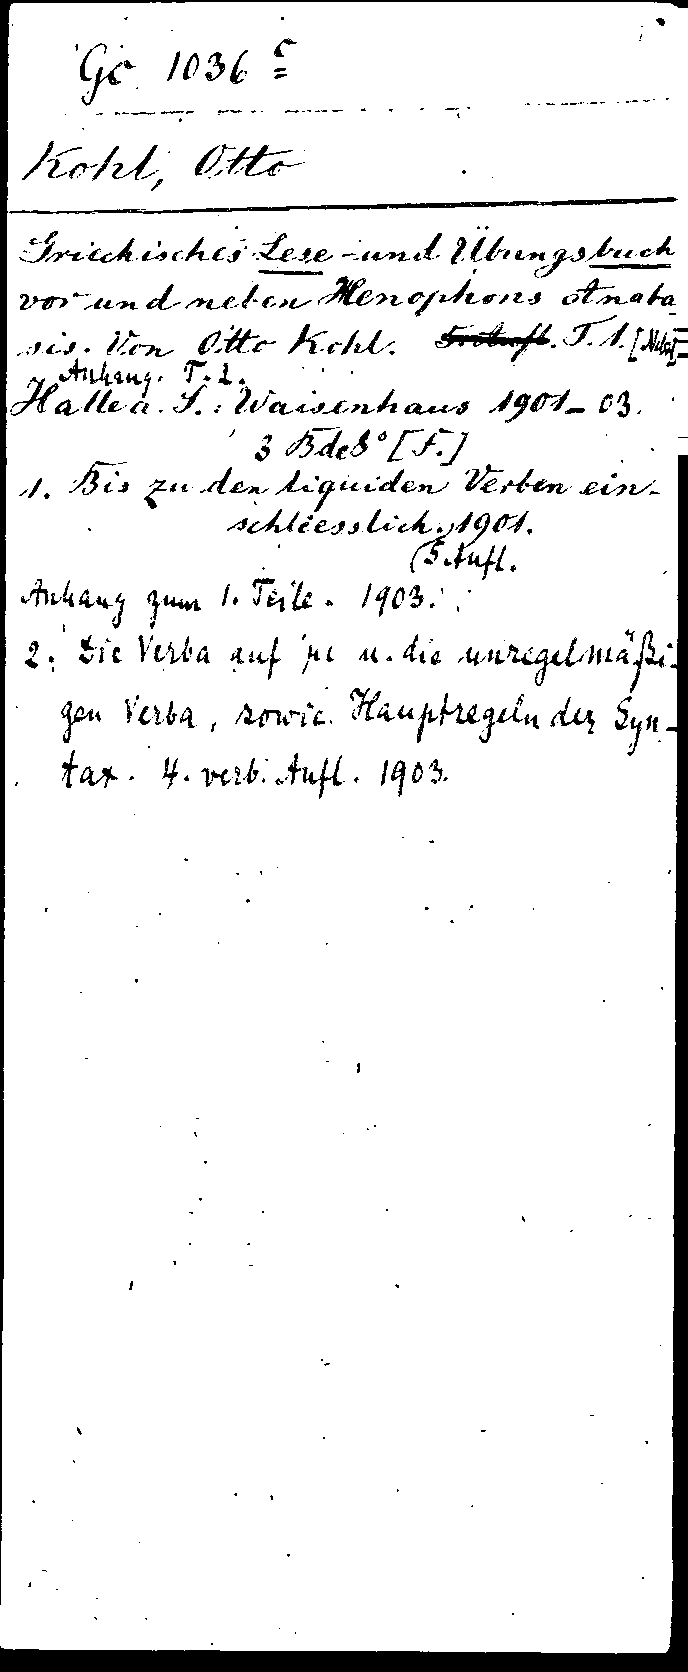 Gc 1036 c
Kohl, Otto
Griechisches Lese- und Übungsbuch
vor und neben Xenophons Anaba-
sis. Von Otto Kohl. T. 1. [Nebst]
Anhang. T. 2.
Halle a. S.: Waisenhaus 1901-03.
3 Bde 8° [F.]
1. Bis zu den liquiden Verben ein-
schliesslich. 1901.
(5. Aufl.
Anhang zum 1. Teile. 1903.
2. Die Verba auf μι u. die unregelmäßi-
gen Verba, sowie Hauptregeln der Syn-
tax. 4. verb. Aufl. 1903.